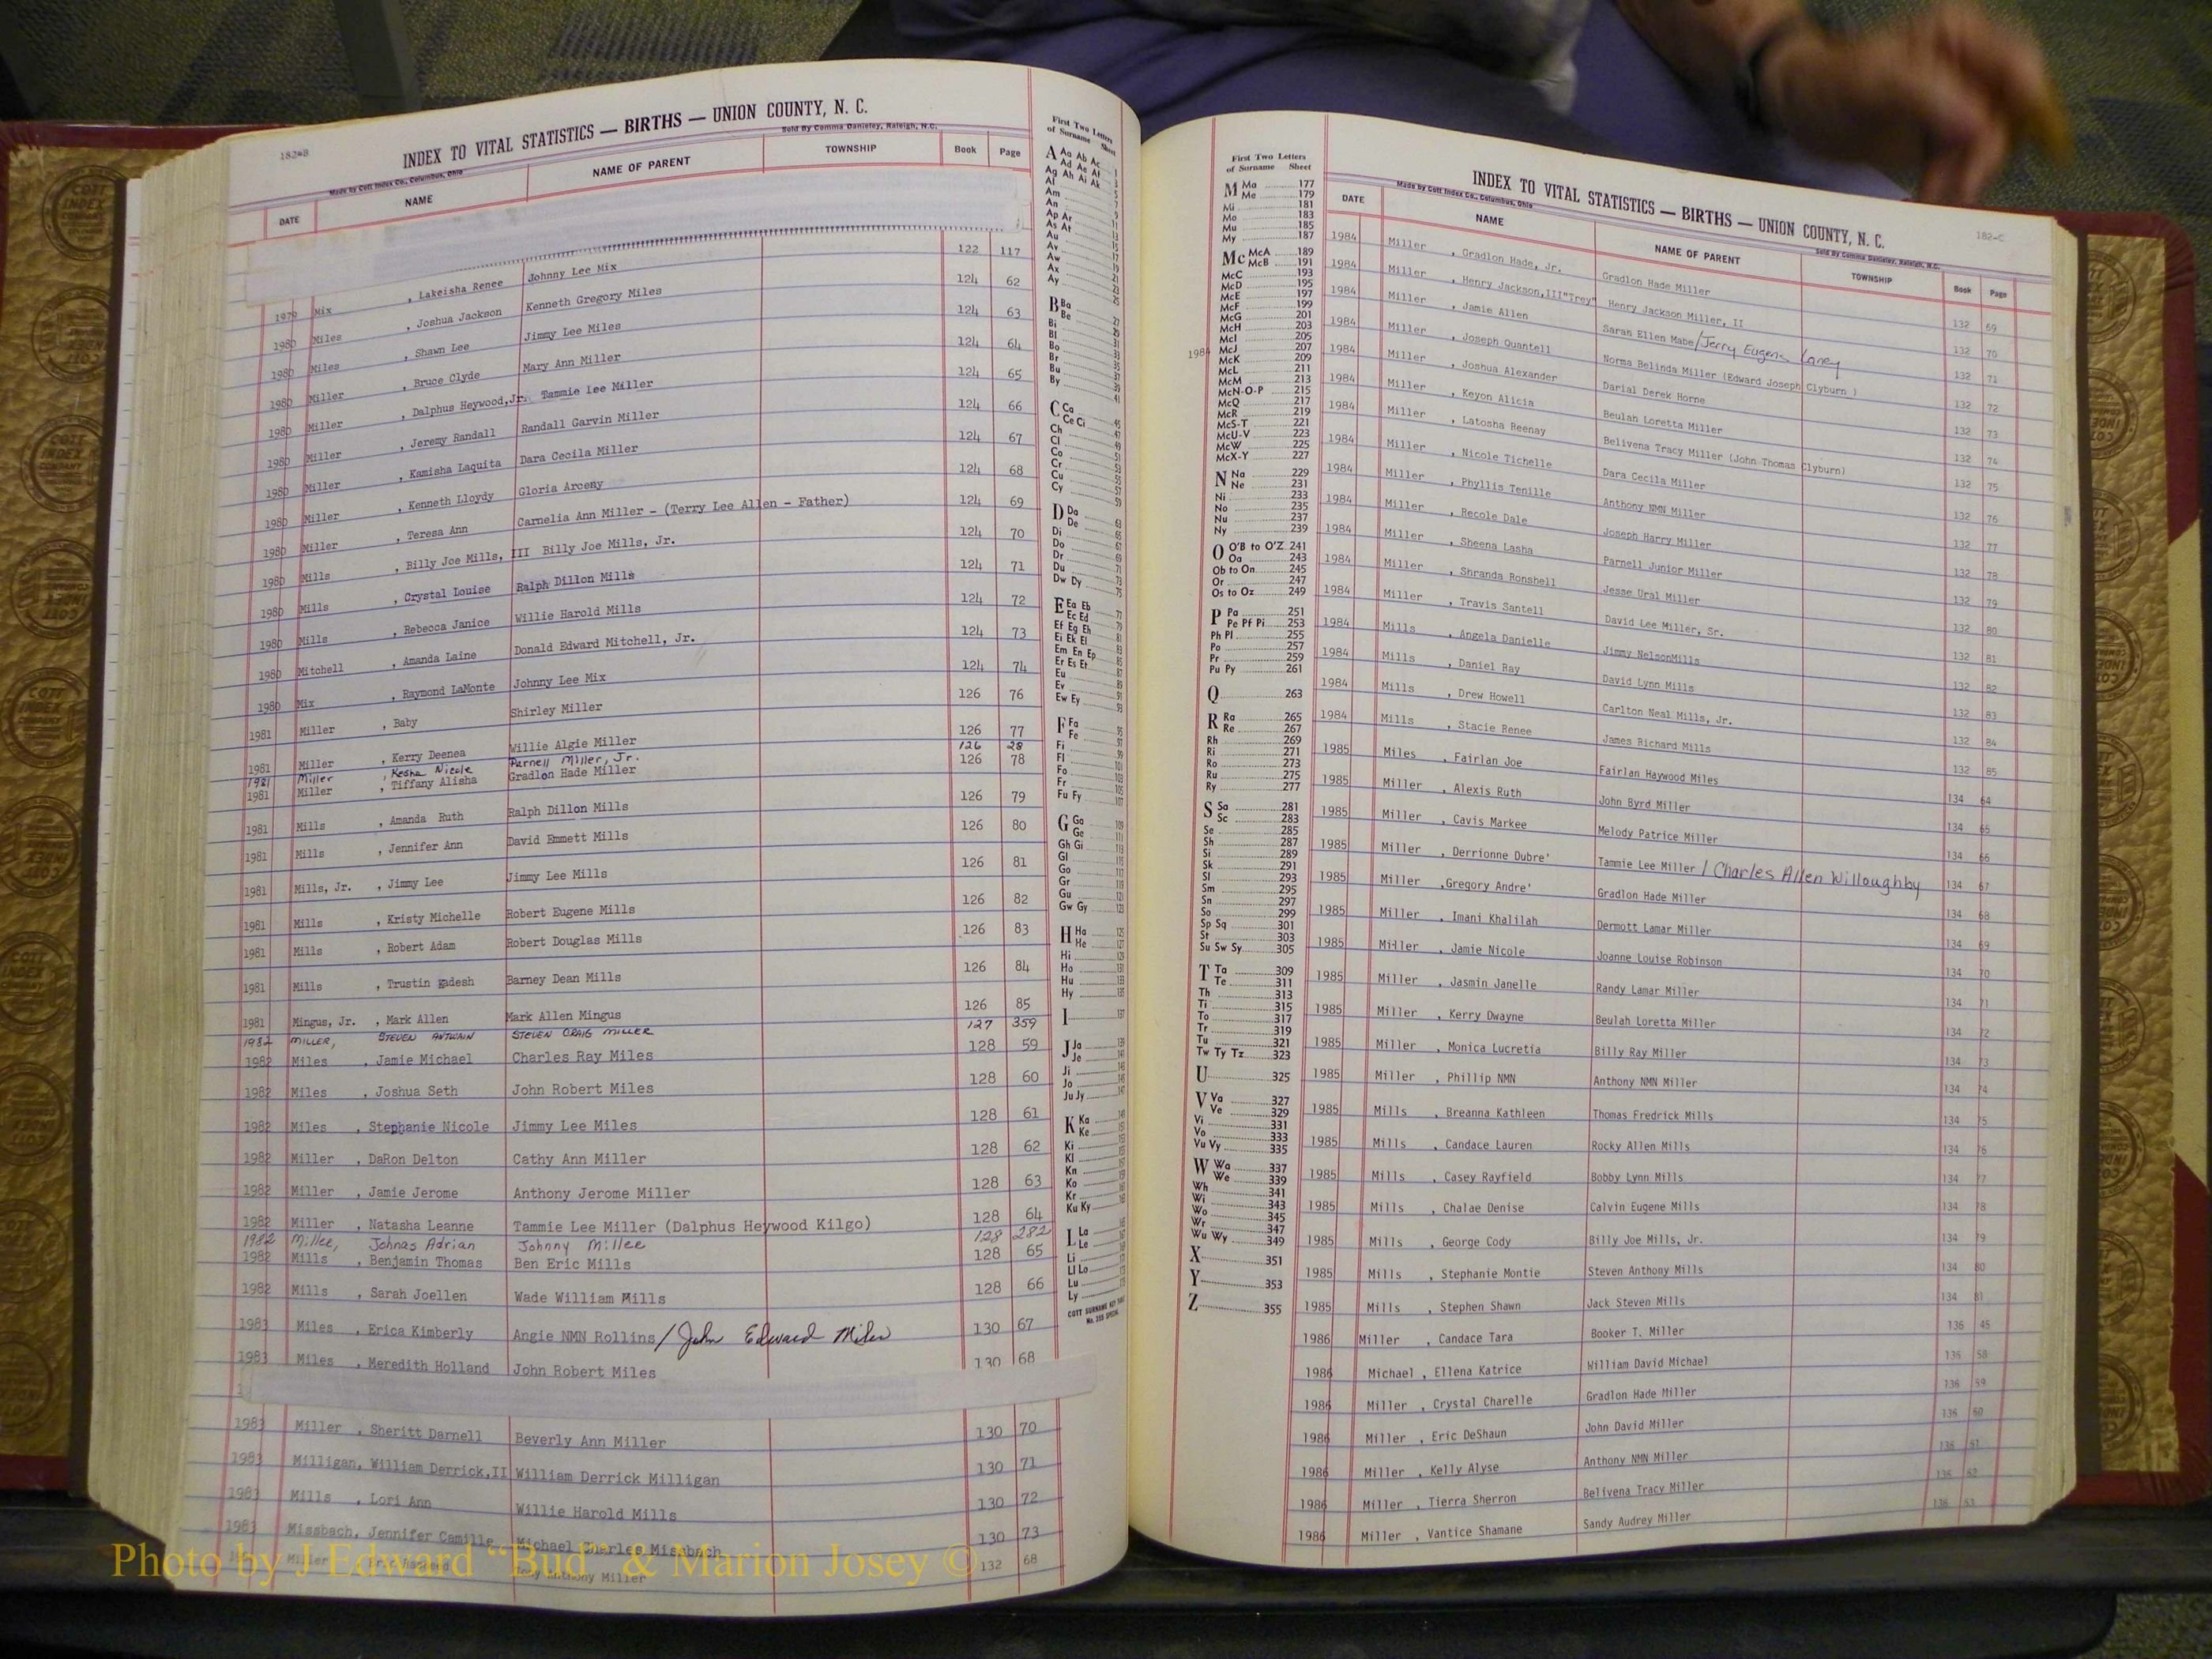 182-B
INDEX TO VITAL STATISTICS — BIRTHS — UNION COUNTY, N. C.
Made by Cott Index Co., Columbus, Ohio
Sold By Comma Danieley, Raleigh, N.C.
DATE NAME NAME OF PARENT TOWNSHIP Book Page
1979 Mix , Lakeisha Renee Johnny Lee Mix 122 117
1980 Miles , Joshua Jackson Kenneth Gregory Miles 124 62
1980 Miles , Shawn Lee Jimmy Lee Miles 124 63
1980 Miller , Bruce Clyde Mary Ann Miller 124 64
1980 Miller , Dalphus Heywood,Jr. Tammie Lee Miller 124 65
1980 Miller , Jeremy Randall Randall Garvin Miller 124 66
1980 Miller , Kamisha Laquita Dara Cecila Miller 124 67
1980 Miller , Kenneth Lloydy Gloria Arceny 124 68
1980 Miller , Teresa Ann Carnelia Ann Miller - (Terry Lee Allen - Father) 124 69
1980 Mills , Billy Joe Mills, III Billy Joe Mills, Jr. 124 70
1980 Mills , Crystal Louise Ralph Dillon Mills 124 71
1980 Mills , Rebecca Janice Willie Harold Mills 124 72
1980 Mitchell , Amanda Laine Donald Edward Mitchell, Jr. 124 73
1980 Mix , Raymond LaMonte Johnny Lee Mix 124 74
1981 Miller , Baby Shirley Miller 126 76
1981 Miller , Kerry Deenea Willie Algie Miller 126 77
1981 Miller , Kesha Nicole Parnell Miller, Jr. 126 28
1981 Miller , Tiffany Alisha Gradlon Hade Miller 126 78
1981 Mills , Amanda Ruth Ralph Dillon Mills 126 79
1981 Mills , Jennifer Ann David Emmett Mills 126 80
1981 Mills, Jr. , Jimmy Lee Jimmy Lee Mills 126 81
1981 Mills , Kristy Michelle Robert Eugene Mills 126 82
1981 Mills , Robert Adam Robert Douglas Mills 126 83
1981 Mills , Trustin Kadesh Barney Dean Mills 126 84
1981 Mingus, Jr. , Mark Allen Mark Allen Mingus 126 85
1982 MILLER, STEVEN ANTWAIN STEVEN CRAIG MILLER 127 359
1982 Miles , Jamie Michael Charles Ray Miles 128 59
1982 Miles , Joshua Seth John Robert Miles 128 60
1982 Miles , Stephanie Nicole Jimmy Lee Miles 128 61
1982 Miller , DaRon Delton Cathy Ann Miller 128 62
1982 Miller , Jamie Jerome Anthony Jerome Miller 128 63
1982 Miller , Natasha Leanne Tammie Lee Miller (Dalphus Heywood Kilgo) 128 64
1982 Miller, Johnas Adrian Johnny Miller 128 282
1982 Mills , Benjamin Thomas Ben Eric Mills 128 65
1982 Mills , Sarah Joellen Wade William Mills 128 66
1983 Miles , Erica Kimberly Angie NMN Rollins / John Edward Miles 130 67
1983 Miles , Meredith Holland John Robert Miles 130 68
1983 Miller , Sheritt Darnell Beverly Ann Miller 130 70
1983 Milligan, William Derrick,II William Derrick Milligan 130 71
1983 Mills , Lori Ann Willie Harold Mills 130 72
1983 Missbach, Jennifer Camille Michael Charles Missbach 130 73
Miller Anthony Miller 132 68
First Two Letters of Surname Sheet
M Ma 177
Me 179
Mi 181
Mo 183
Mu 185
My 187
Mc McA 189
McB 191
McC 193
McD 195
McE 197
McF 199
McG 201
McH 203
McI 205
McJ 207
McK 209
McL 211
McM 213
McN-O-P 215
McQ 217
McR 219
McS-T 221
McU-V 223
McW 225
McX-Y 227
N Na 229
Ne 231
Ni 233
No 235
Nu 237
Ny 239
O O'B to O'Z 241
Oa 243
Ob to On 245
Or 247
Os to Oz 249
P Pa 251
Pe Pf Pi 253
Ph Pl 255
Po 257
Pr 259
Pu Py 261
Q 263
R Ra 265
Re 267
Rh 269
Ri 271
Ro 273
Ru 275
Ry 277
S Sa 281
Sc 283
Se 285
Sh 287
Si 289
Sk 291
Sl 293
Sm 295
Sn 297
So 299
Sp Sq 301
St 303
Su Sw Sy 305
T Ta 309
Te 311
Th 313
Ti 315
To 317
Tr 319
Tu 321
Tw Ty Tz 323
U 325
V Va 327
Ve 329
Vi 331
Vo 333
Vu Vy 335
W Wa 337
We 339
Wh 341
Wi 343
Wo 345
Wr 347
Wu Wy 349
X 351
Y 353
Z 355
182-C
INDEX TO VITAL STATISTICS — BIRTHS — UNION COUNTY, N. C.
Made by Cott Index Co., Columbus, Ohio
Sold By Comma Danieley, Raleigh, N.C.
DATE NAME NAME OF PARENT TOWNSHIP Book Page
1984 Miller , Gradlon Hade, Jr. Gradlon Hade Miller 132 69
1984 Miller , Henry Jackson,III"Trey" Henry Jackson Miller, II 132 70
1984 Miller , Jamie Allen Sarah Ellen Mabe/Jerry Eugene Laney 132 71
1984 Miller , Joseph Quantell Norma Belinda Miller (Edward Joseph Clyburn ) 132 72
1984 Miller , Joshua Alexander Darial Derek Horne 132 73
1984 Miller , Keyon Alicia Beulah Loretta Miller 132 74
1984 Miller , Latosha Reenay Belivena Tracy Miller (John Thomas Clyburn) 132 75
1984 Miller , Nicole Tichelle Dara Cecila Miller 132 76
1984 Miller , Phyllis Tenille Anthony NMN Miller 132 77
1984 Miller , Recole Dale Joseph Harry Miller 132 78
1984 Miller , Sheena Lasha Parnell Junior Miller 132 79
1984 Miller , Shranda Ronshell Jesse Ural Miller 132 80
1984 Miller , Travis Santell David Lee Miller, Sr. 132 81
1984 Mills , Angela Danielle Jimmy NelsonMills 132 82
1984 Mills , Daniel Ray David Lynn Mills 132 83
1984 Mills , Drew Howell Carlton Neal Mills, Jr. 132 84
1984 Mills , Stacie Renee James Richard Mills 132 85
1985 Miles , Fairlan Joe Fairlan Haywood Miles 134 64
1985 Miller , Alexis Ruth John Byrd Miller 134 65
1985 Miller , Cavis Markee Melody Patrice Miller 134 66
1985 Miller , Derrionne Dubre' Tammie Lee Miller / Charles Allen Willoughby 134 67
1985 Miller ,Gregory Andre' Gradlon Hade Miller 134 68
1985 Miller , Imani Khalilah Dermott Lamar Miller 134 69
1985 Miller , Jamie Nicole Joanne Louise Robinson 134 70
1985 Miller , Jasmin Janelle Randy Lamar Miller 134 71
1985 Miller , Kerry Dwayne Beulah Loretta Miller 134 72
1985 Miller , Monica Lucretia Billy Ray Miller 134 73
1985 Miller , Phillip NMN Anthony NMN Miller 134 74
1985 Mills , Breanna Kathleen Thomas Fredrick Mills 134 75
1985 Mills , Candace Lauren Rocky Allen Mills 134 76
1985 Mills , Casey Rayfield Bobby Lynn Mills 134 77
1985 Mills , Chalae Denise Calvin Eugene Mills 134 78
1985 Mills , George Cody Billy Joe Mills, Jr. 134 79
1985 Mills , Stephanie Montie Steven Anthony Mills 134 80
1985 Mills , Stephen Shawn Jack Steven Mills 134 81
1986 Miller , Candace Tara Booker T. Miller 136 45
1986 Michael , Ellena Katrice William David Michael 136 58
1986 Miller , Crystal Charelle Gradlon Hade Miller 136 59
1986 Miller , Eric DeShaun John David Miller 136 60
1986 Miller , Kelly Alyse Anthony NMN Miller 136 61
1986 Miller , Tierra Sherron Belivena Tracy Miller 136 62
1986 Miller , Vantice Shamane Sandy Audrey Miller 136 63
Photo by J Edward "Bud" & Marion Josey ©